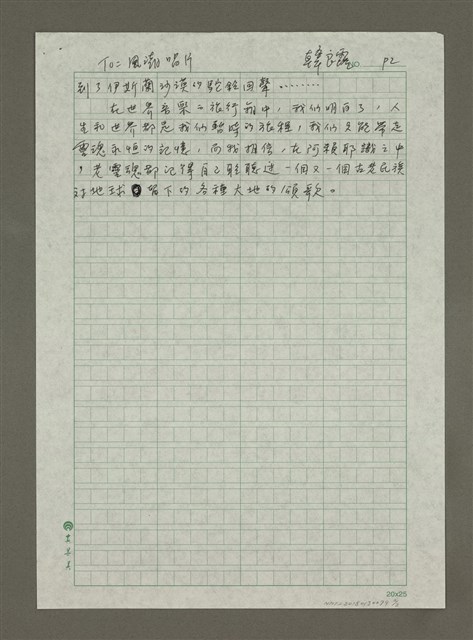 To：風潮唱片 韓良露 P2
到了伊斯蘭沙漠的駝鈴回聲‥‥‥‥
在世界音樂之旅行前中，我們明白了，人
生和世界都是我們暫時的旅程，我們只能帶走
靈魂永恒的記憶，而我相信，在阿賴耶識之中
，老靈魂都記得自己聆聽過一個又一個古老民族
對地球留下的各種大地的頌歌。
20x25